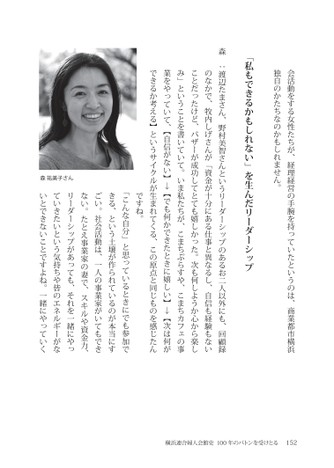 会活動をする女性たちが、経理経営の手腕を持っていたというのは、商業都市横浜
独自のかたちなのかもしれません。
「私もできるかもしれない」を生んだリーダーシップ
森 : 渡辺たまさん、野村美智さんというリーダーシップのあるお二人以外にも、回顧録
のなかで、牧内しげさんが「資金が十分にある仕事と異なるし、自信も経験もない
ことだったけど、バザーが成功してとても嬉しかった。次も何しようか心から楽し
み」ということを書いていて。いま私たちが、こまちぷらすや、こまちカフェの事
業をやっていて、【自信がない】→【でも何かできたときに嬉しい】→【次は何が
できるか考える】というサイクルが生まれてくる、この原点と同じものを感じたん
ですね。
「こんな自分?」と思っているときにでも参加で
きる、という土壌が作られているのが本当にす
ごい。社会活動は、一人の事業家がいてもでき
ない。たとえ事業家の妻で、スキルや資金力、
リーダーシップがあっても、それを一緒にやっ
ていきたいという気持ちや皆のエネルギーがな
いとできないことですよね。一緒にやっていく
森 祐美子さん
横浜連合婦人会館史 100年のバトンを受けとる 152